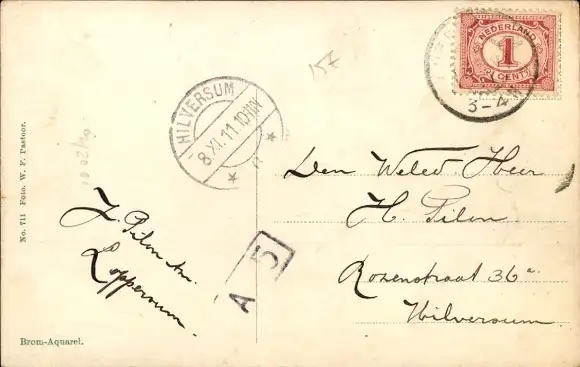 NEDERLAND
1
CENT
3-4
157
HILVERSUM
8.XI.11.10
Den Weled. Heer
H. Pilon
Rozenstraat 36a
Hilversum
Pilon
Loppersum
A 5
No. 711 Foto. W. F. Pastoor.
Brom-Aquarel.